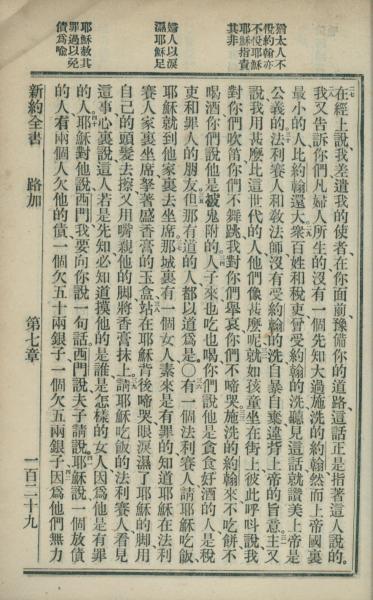 猶太人不
悅約翰亦
不悅耶穌
耶穌指責
其非
婦人以淚
濕耶穌足
耶穌赦其
罪過以免
債為喻
在經上說我差遣我的使者在你面前豫備你的道路這話正是指著這人說的
我又告訴你們凡婦人所生的沒有一個先知大過施洗的約翰然而上帝國裏
最小的人比約翰還大衆百姓和稅吏曾受約翰的洗聽見這話就讚美上帝是
公義的法利賽人和敎法師沒有受約翰的洗自暴自棄違背上帝的旨意主又
說我用甚麼比這世代的人他們像甚麼呢就如孩童坐在街上彼此呼呌說我
對你們吹笛你們不舞跳我對你們舉哀你們不啼哭施洗的約翰來不吃餅不
喝酒你們說他是被鬼附的人子來也吃也喝你們說他是貪食好酒的人是稅
吏和罪人的朋友但那有道的人都以道為是〇有一個法利賽人請耶穌吃飯
耶穌就到他家裏去坐席那城裏有一個女人素來是有罪的知道耶穌在法利
賽人家裏坐席拏著盛香膏的玉盒站在耶穌背後啼哭眼淚濕了耶穌的脚用
自己的頭髮去擦又用嘴親他的脚將香膏抹上請耶穌吃飯的法利賽人看見
這事心裏說這人若是先知必知道摸他的是誰是怎樣的女人因為他是有罪
的人耶穌對他說西門我要向你說一句話西門說夫子請說耶穌說一個放債
的人有兩個人欠他的債一個欠五十兩銀子一個欠五兩銀子因為他們無力
新約全書 路加 第七章 一百二十九